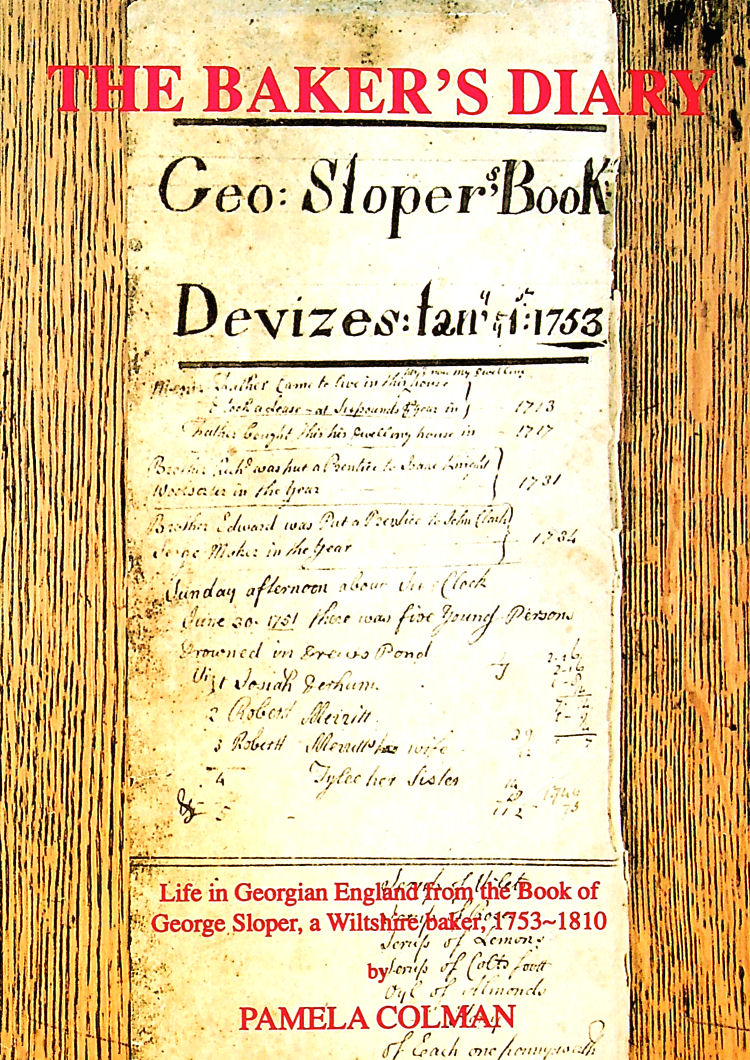 THE BAKER'S DIARY
Geo: Sloper's Book
Devizes: Jan'y 1st: 1753
Father Came to live in this house
now my Dwelling
took a Lease at Six pounds Year in 1713
Father bought this his Dwelling house in 1717
Brother Rich'd was put a Prentice to Isaac Knight
Woolsorter in the Year 1731
Brother Edward was Put a Prentice to John Clark
Serge Maker in the Year 1734
Sunday afternoon about Six Clock
June 30 1751 there was five Young Persons
Drowned in Drews Pond
Viz 1 Josiah Derham
2 Robert Merritt
3 Robert Merritts his wife
4 Tylee her Sister
5
Life in Georgian England from the Book of
George Sloper, a Wiltshire baker, 1753~1810
Serup of Lemons
by
Serup of Colts foott
Oyl of Almonds
PAMELA COLMAN
of Each one pennyworth